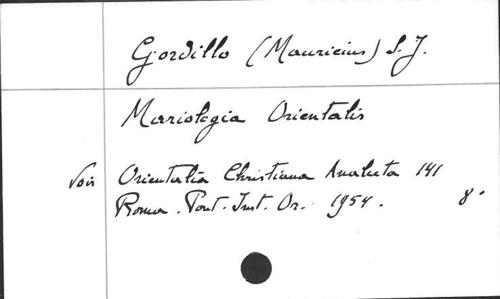 Gordillo (Mauricius) S.J.
Mariologia Orientalis
Voir Orientalia Christiana Analecta 141
Roma. Pont. Inst. Or. 1954. 8°